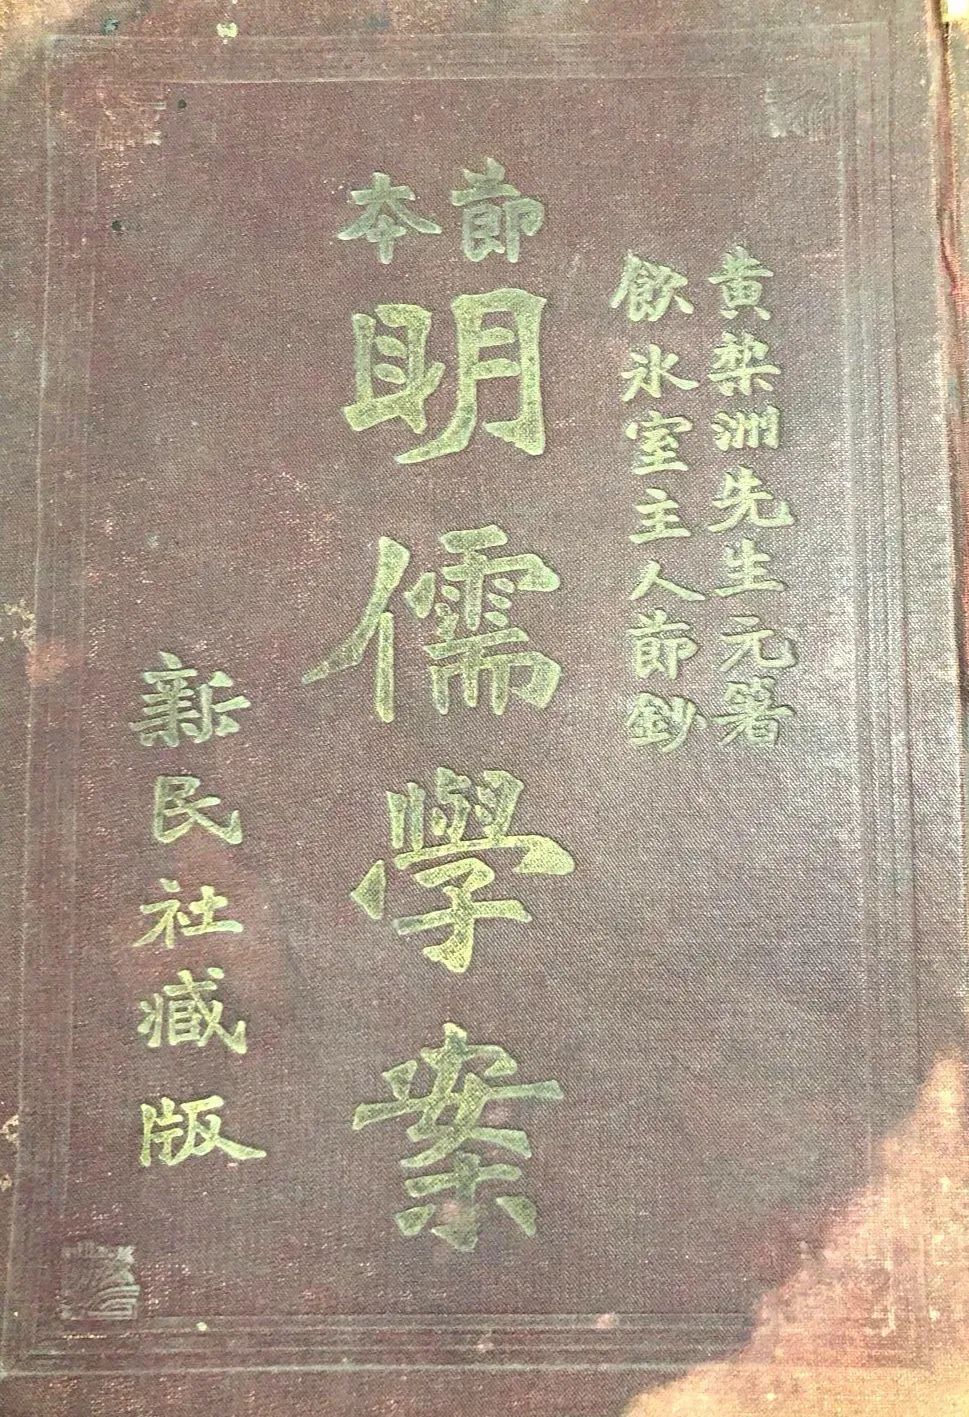 黄棃洲先生元箸
飲氷室主人節鈔
節本
明儒學案
新民社臧版